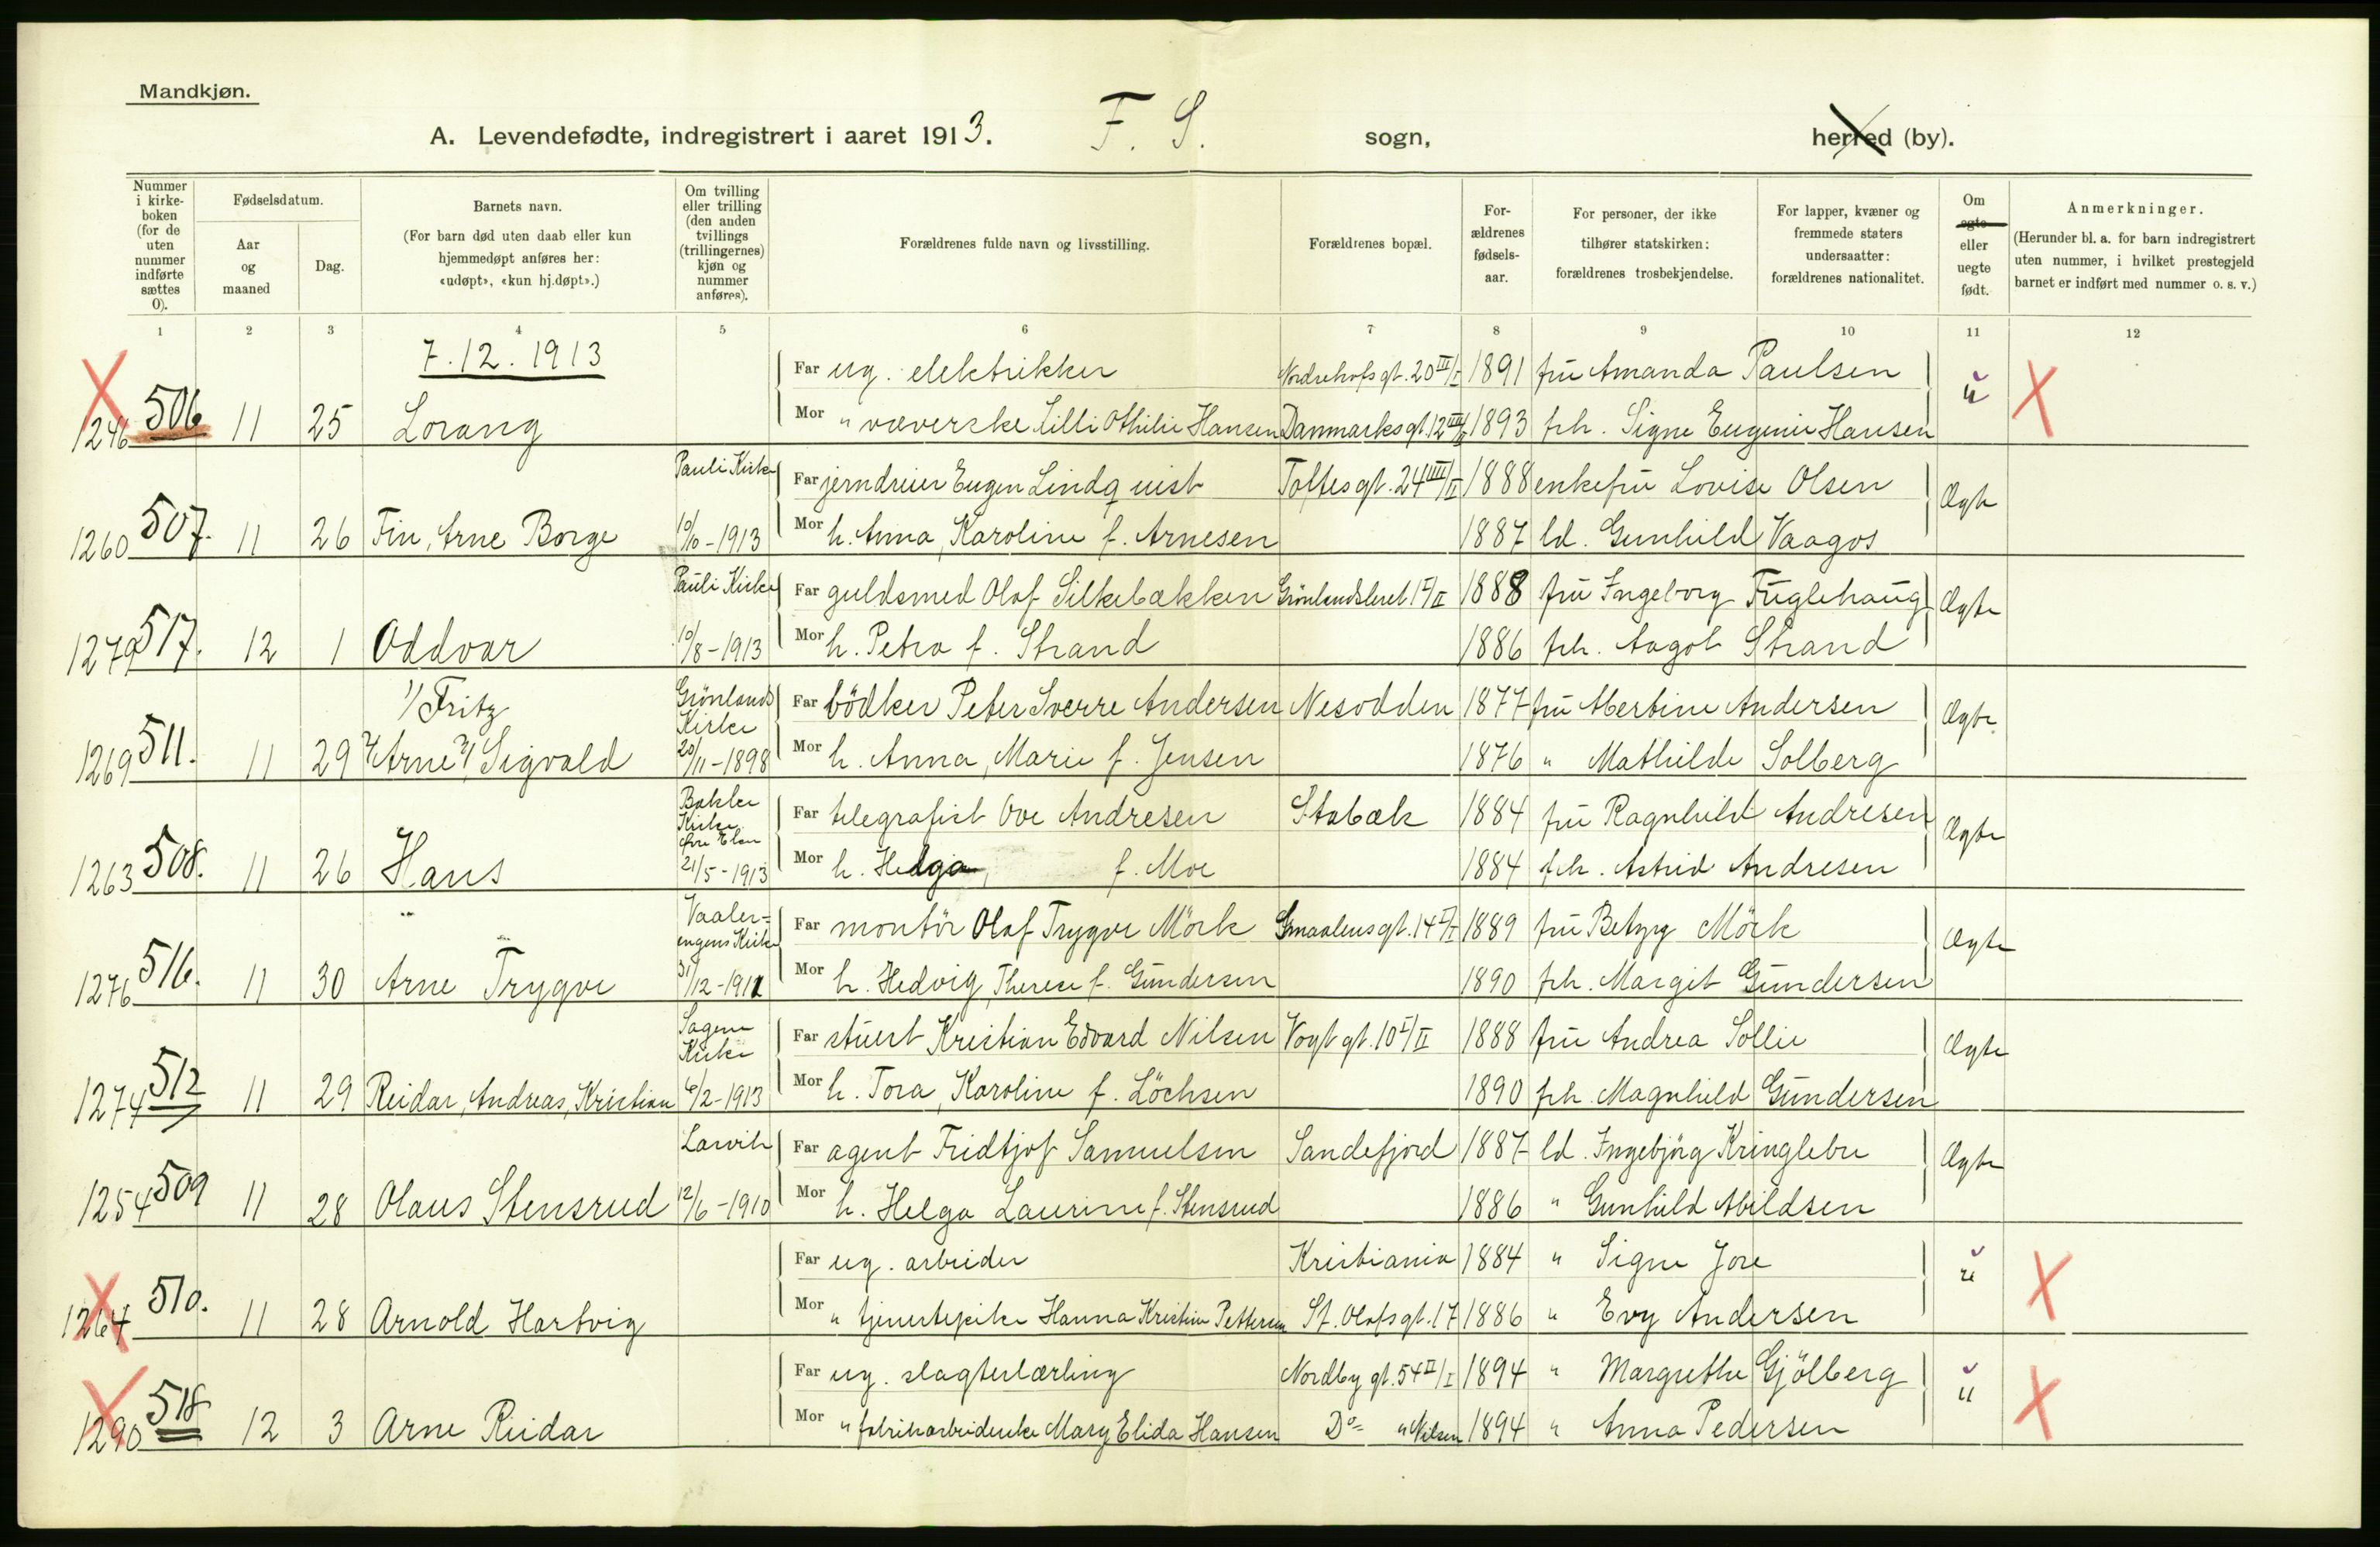 Mandkjøn.
A. Levendefødte, indregistrert i aaret 1913. F. S. sogn, herred (by).
Nummer i kirke-boken (for de uten nummer indførte sættes 0).
Fødselsdatum.
Aar og maaned
Dag.
Barnets navn.
(For barn død uten daab eller kun hjemmedøpt anføres her: «udøpt», «kun hj.døpt».)
Om tvilling eller trilling (den anden tvillings (trillingernes) kjøn og nummer anføres).
Forældrenes fulde navn og livsstilling.
Forældrenes bopæl.
For-ældrenes fødsels-aar.
For personer, der ikke tilhører statskirken: forældrenes trosbekjendelse.
For lapper, kvæner og fremmede staters undersaatter: forældrenes nationalitet.
Om egte eller uegte født.
Anmerkninger.
(Herunder bl. a. for barn indregistrert uten nummer, i hvilket prestegjeld barnet er indført med nummer o. s. v.)
1 2 3 4 5 6 7 8 9 10 11 12
7.12.1913
Far ug. elektrikker Nordrehofsgt. 20 III/I 1891 fru Amanda Paulsen
1246 506 11 25 Lorang Mor " væverske Lilli Othilie Hansen Danmarksgt. 12 1893 frk. Signe Eugenie Hansen u X
Pauli Kirke Far jerndreier Eugen Lindquist Toftesgt. 24 IIII/II 1888 enkefru Lovise Olsen
1260 507. 11 26 Fin, Arne Borge 10/10-1913 Mor h. Anna, Karoline f. Arnesen 1887 ld. Gunhild Vaagos Ægte
Pauli Kirke Far guldsmed Olaf Silkebækken Grönlandsleret 17/II 1888 fru Ingeborg Fuglehaug
1279 517. 12 1 Oddvar 10/8-1913 Mor h. Petra f. Strand 1886 frk. Aagot Strand Ægte
1/ Fritz Grönlands Kirke Far bödker Peter Sverre Andersen Nesodden 1877 fru Albertine Andersen
1269 511. 11 29 2/ Arne 3/ Sigvald 20/11-1898 Mor h. Anna, Marie f. Jensen 1876 " Mathilde Solberg Ægte
Bakke Kirke Far telegrafist Ove Andresen Stabæk 1884 fru Ragnhild Andresen
1263 508. 11 26 Hans 21/5-1913 Mor h. Helga, f. Moe 1884 frk. Astrid Andresen Ægte
Vaaler-engens Kirke Far montör Olaf Trygve Mörk Smaalensgt. 14 I/I 1889 fru Betzy Mörk
1276 516. 11 30 Arne Trygve 31/12-1911 Mor h. Hedvig, Therese f. Gundersen 1890 frk. Margit Gundersen Ægte
Sagene Kirke Far stuert Kristian Edvard Nilsen Vogtgt. 10 I/II 1888 fru Andrea Sollie
1274 512 11 29 Reidar, Andreas, Kristian 6/2-1913 Mor h. Tora, Karoline f. Löchsen 1890 frk. Magnhild Gundersen Ægte
Larvik Far agent Fridtjof Samuelsen Sandefjord 1887 ld. Ingebjörg Kringlebu
1254 509 11 28 Olaus Stensrud 12/6-1910 Mor h. Helga Laurine f. Stensrud 1886 " Gunhild Abildsen Ægte
Far ug. arbeider Kristiania 1884 " Signe Jore
1264 510. 11 28 Arnold Hartvig Mor " tjenestepike Hanna Kristine Pettersen St. Olafsgt. 17 1886 " Evy Andersen u X
Far ug. slagterlærling Nordbygt. 54 II/I 1894 " Margrethe Gjölberg
1290 518 12 3 Arne Reidar Mor " fabrikarbeiderske Mary Elida Hansen Do " Nilsen 1894 " Anna Pedersen u X